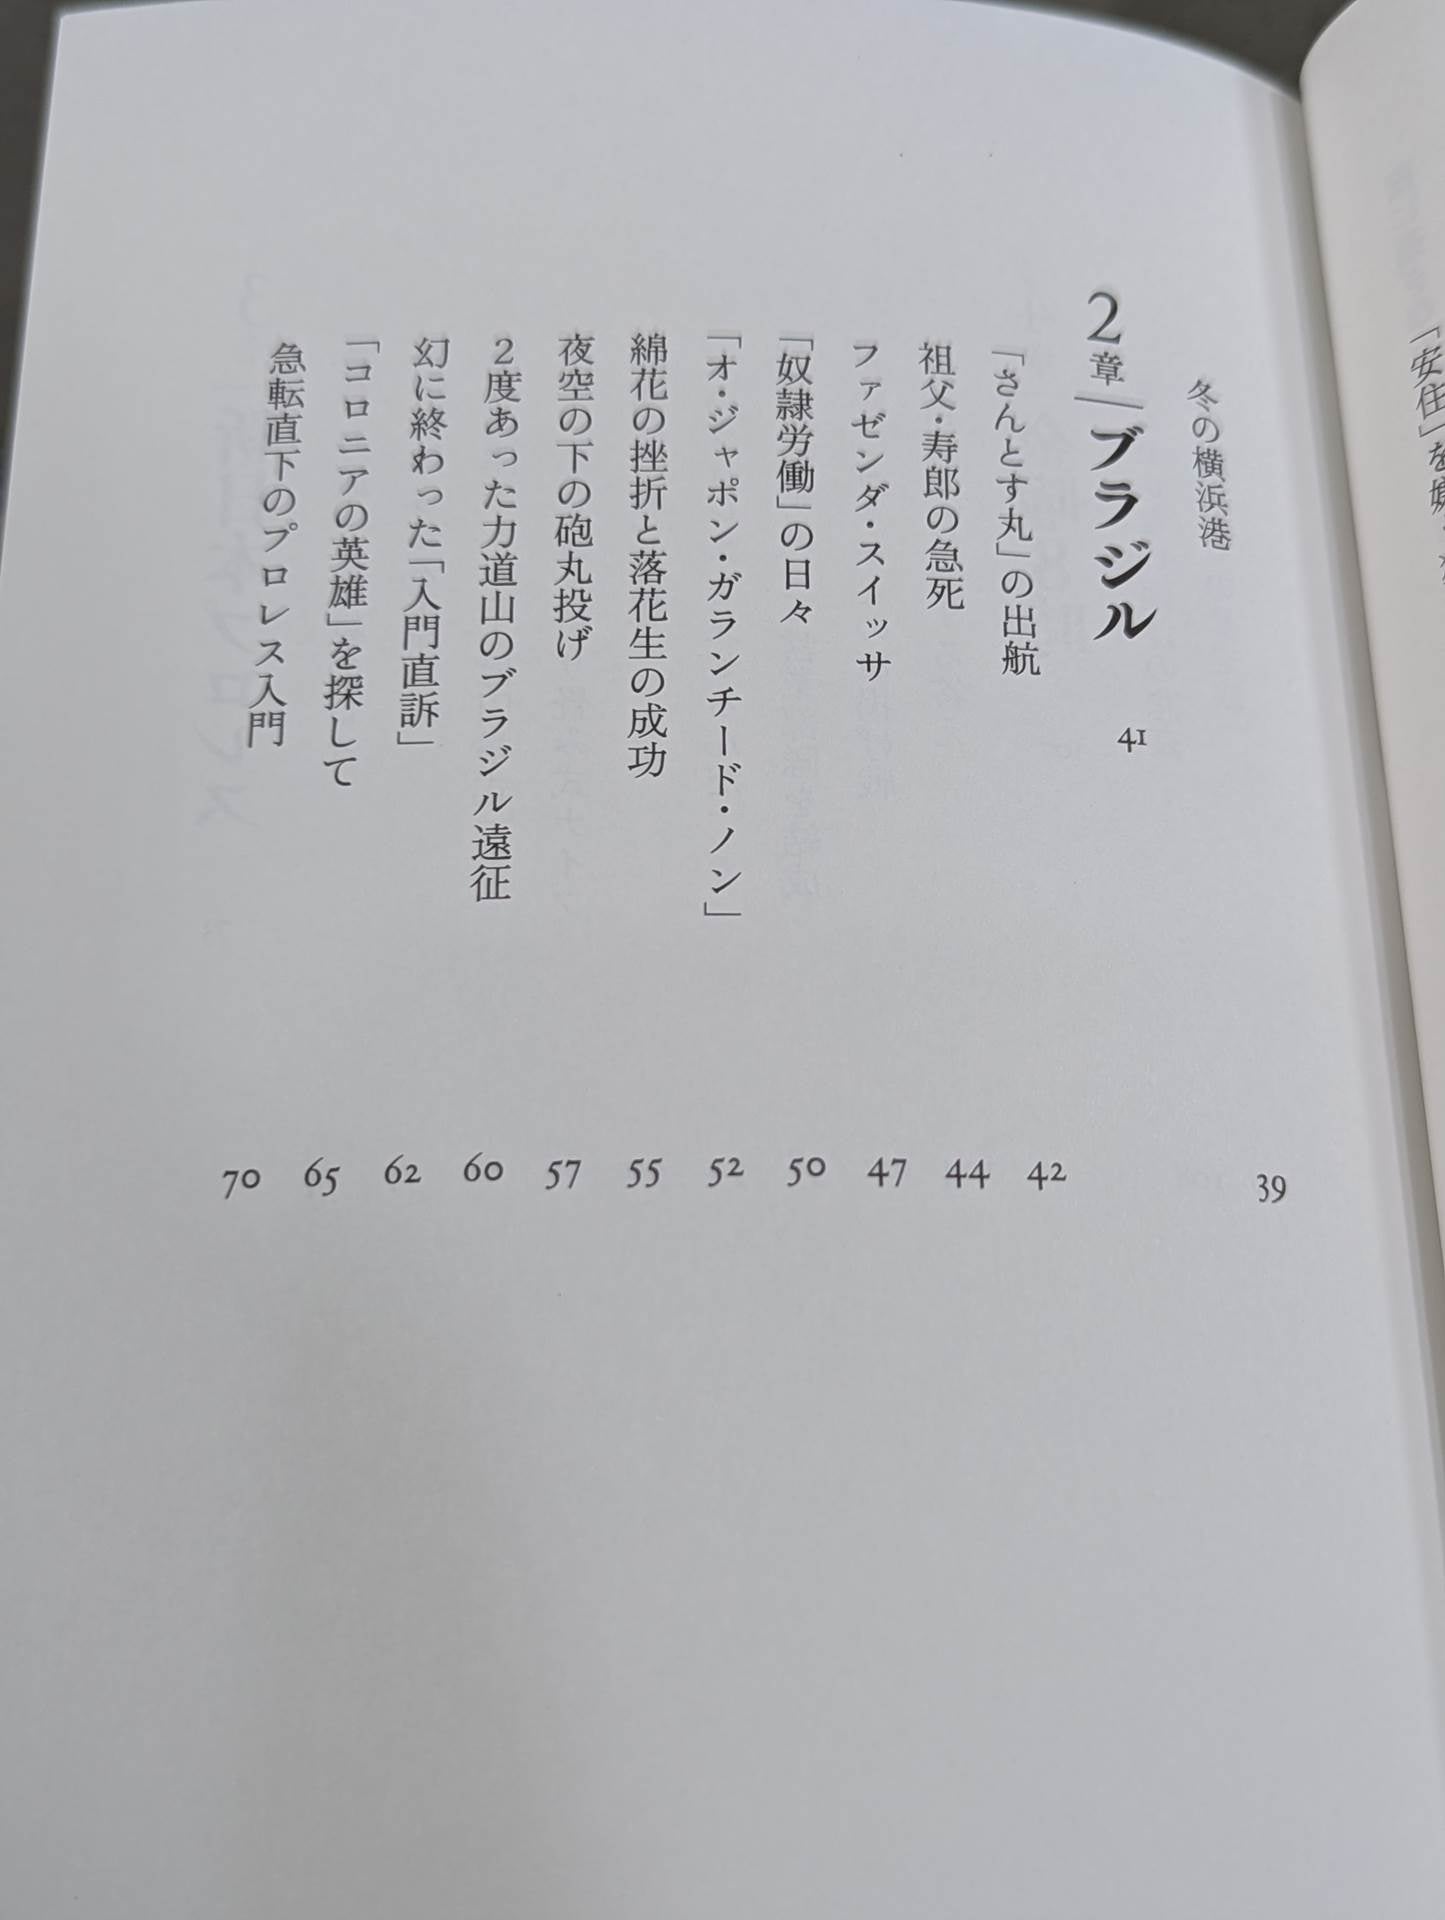 冬の横浜港 39
2章 ブラジル 41
「さんとす丸」の出航 42
祖父・寿郎の急死 44
ファゼンダ・スイッサ 47
「奴隷労働」の日々 50
「オ・ジャポン・ガランチード・ノン」 52
綿花の挫折と落花生の成功 55
夜空の下の砲丸投げ 57
2度あった力道山のブラジル遠征 60
幻に終わった「入門直訴」 62
「コロニアの英雄」を探して 65
急転直下のプロレス入門 70